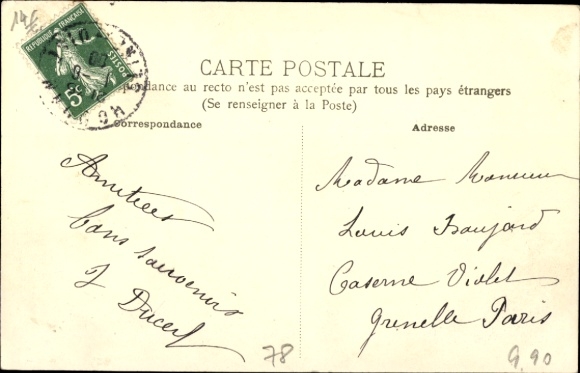 14€
REPUBLIQUE FRANÇAISE
POSTES
5c
CARTE POSTALE
pondance au recto n'est pas acceptée par tous les pays étrangers
(Se renseigner à la Poste)
Correspondance
Adresse
Amitiées
bons souvenirs
Ducerf
Madame Monsieur
Louis
Caserne Violet
Grenelle Paris
78
9,90